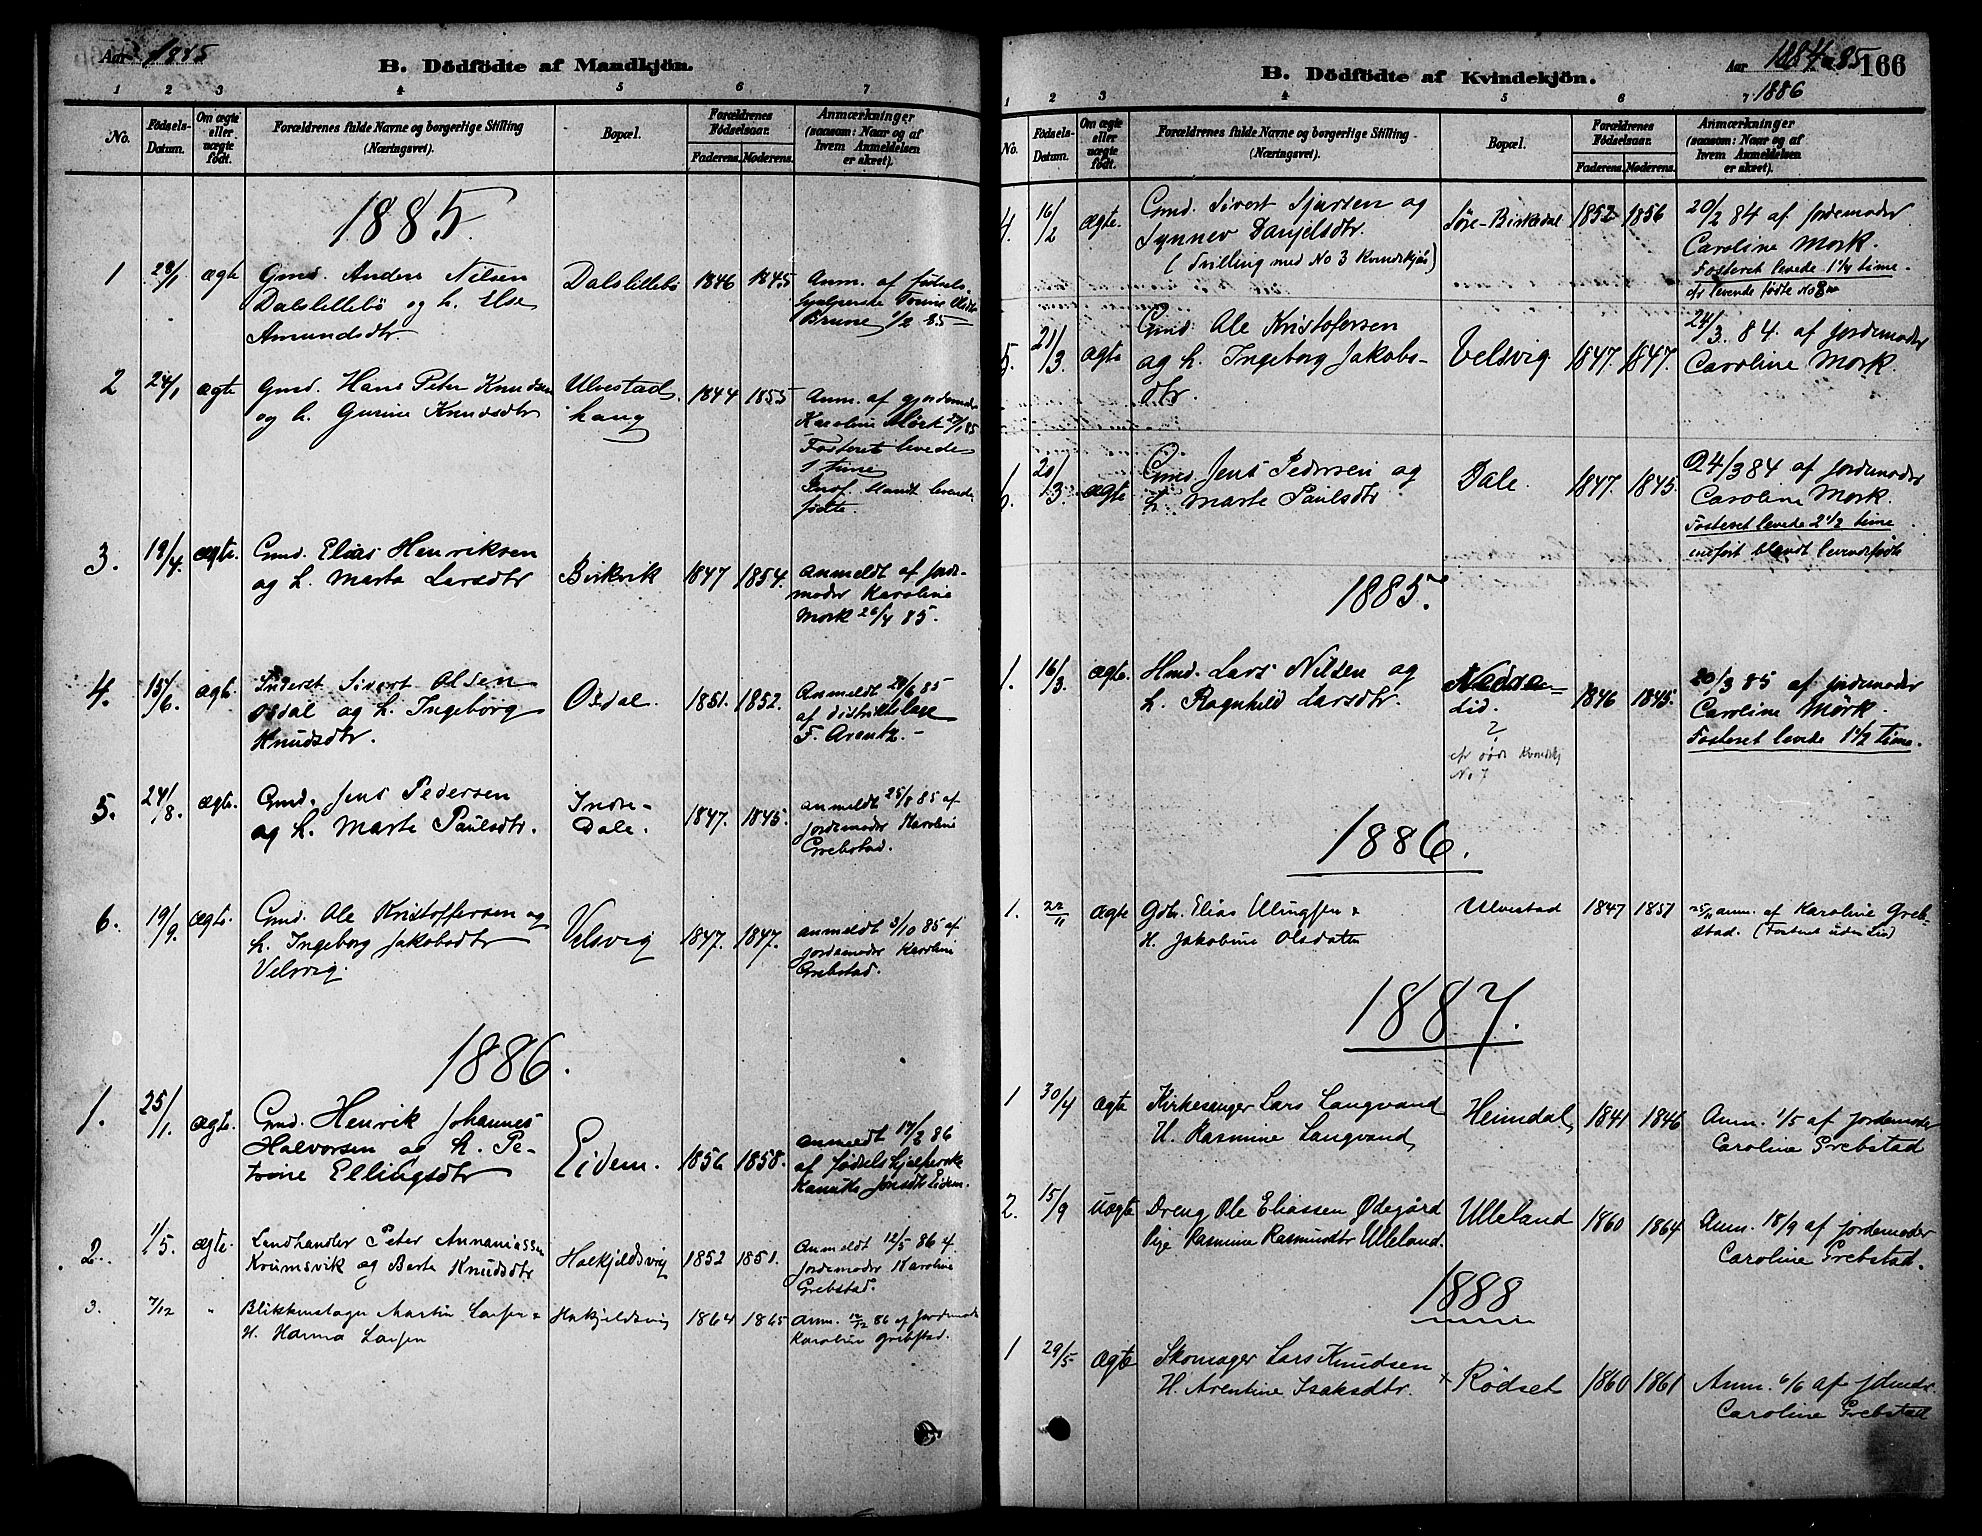 Aar 1885
B. Dödfödte af Mandkjön.
1 2 3 4 5 6 7
No.
Födsels-
Datum.
Om ægte
eller
uægte
født.
Forældrenes fulde Navne og borgerlige Stilling
(Næringsvei).
Bopæl.
Forældrenes
Födselsaar.
Faderens. Moderens.
Anmærkninger
(saasom: Naar og af
hvem Anmeldelsen
er skret).
1885
1 28/1 ægte Gmd. Anders Nilsen Dalslillebö 1846 1845 Anm. af fødsels-
Dalslillebö og h. Else
Brune 1/2 85
Amundsdtr
2 24/1 ægte Gmd. Hans Peter Knudsen Ulvestad 1844 1855 Anm. af gjordemoder
og h. Gurine Knudsdtr haug Karoline Mørk 27/1 85
Fosteret levede
1 time
Inf. blandt levende
fødte.
3. 19/4. ægte. Gmd. Elias Henriksen
og h. Marta Larsdtr Birkvik 1847 1854. Anmeldt af jorde-
moder Karoline
Mork 26/4 85.
4. 15/6. ægte. Inderst Sivert Olsen
Osdal og h. Ingeborg Osdal. 1851. 1852. Anmeldt 20/6 85
Knudsdtr. af distriktslæge
F. Arentz.
5. 24/8. ægte. Gmd. Jens Pedersen Indre- Anmeldt 25/8 85 af
og h. Marte Paulsdtr. Dale. 1847. 1845. jordemoder Karoline
Grebstad.
6. 19/9. ægte. Gmd. Ole Kristoffersen og Velsvig 1847. 1847. Anmeldt 3/10 85 af
h. Ingeborg Jakobsdtr jordemoder Karoline
Velsvig. Grebstad.
1886.
1. 25/1. ægte. Gmd. Henrik Johannes
Halvorsen og h. Pe- Eidem. 1856 1858. Anmeldt 14/2 86
trine Ellingsdtr af fødselshjelperske
Jonsdtr Eidem.
2. 1/5. ægte. Landhandler Peter Ananiassen
Krumsvik og Berte Knudsdtr Halkjeldsvig 1852 1851. Anmeldt 12/5 86 af
jordemoder Karoline
Grebstad.
3. 7/12 " Blikkenslager Martin Larsen & Halkjeldsvig 1864 1865 Anm. 12/12 86 af jordemoder
H. Hanna Larsen Karoline Grebstad.
Aar 1884 85 166
1886
B. Dödfödte af Kvindekjön.
1 2 3 4 5 6 7
No.
Födsels-
Datum.
Om ægte
eller
uægte
födt.
Forældrenes fulde Navne og borgerlige Stilling
(Næringsvei).
Bopæl.
Forældrenes
Födselsaar.
Faderens. Moderens.
Anmærkninger
(saasom: Naar og af
hvem Anmeldelsen
er skret).
4. 16/2 ægte. Gmd. Sivert Sjursen og Søre-Birkedal 1852 1856 20/2 84 af jordemoder
Synnev Danjelsdtr. Caroline Mork.
(Tvilling med No 3 Kvindekjøn) Fosteret levede 1 1/4 time.
cfr levende fødte No 8
5. 21/3 ægte Gmd. Ole Kristofersen 24/3. 84. af jordemoder
og h. Ingeborg Jakobs- Velsvig 1847. 1847. Caroline Mork.
dtr.
6. 20/3 ægte Gmd Jens Pedersen og Dale. 1847. 1845. 24/3 84 af jordemoder
h. Marte Paulsdtr Caroline Mork.
Fosteret levede 2 1/2 time
indført blandt levendefødte
1885.
1. 16/3. ægte. Hmd. Lars Nilsen og 1846 1845. 20/3 85 af jordemoder
h. Ragnhild Larsdtr. lid. Caroline Mørk.
? Fosteret levede 1 1/2 time.
cfr døde Kvindekj
No 7
1886.
1. 22/11 ægte Gdb. Elias Ellingsen & Ulvestad 1847 1851 25/11 Anm. af Karoline Greb-
H. Jakobine Olsdatter stad. (Fosteret uden Liv)
1887.
1 30/4 ægte Kirkesanger Lars Langvand Heimdal 1841 1846 Anm. 1/5 af jordemoder
H. Rasmine Langvand, Caroline Grebstad
2. 15/9 uægte Dreng Ole Eliassen Ødegård Ulleland 1860 1864 Anm. 18/9 af jordemoder
Pige Rasmine Rasmusdtr Ulleland. Caroline Grebstad.
1888
1 29/5 ægte Skomager Lars Knudsen × Rødset 1860 1861 Anm. 6/6 af jdmdr.
H. Arentine Isaksdtr. Caroline Grebstad